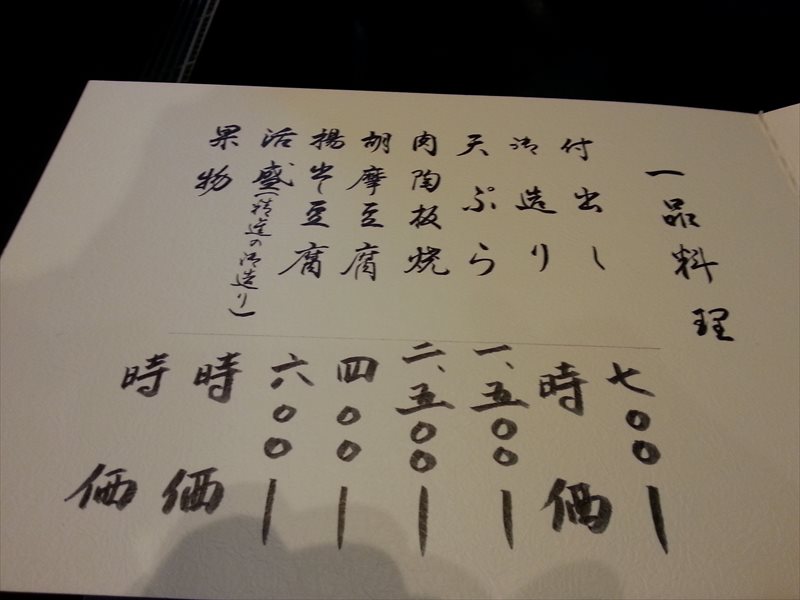 一品料理
付出し
御造り
天ぷら
肉陶板焼
胡摩豆腐
揚出し豆腐
活盛(精進の御造り)
果物
七〇〇|
時価
一、五〇〇|
二、五〇〇|
四〇〇|
六〇〇|
時価
時価